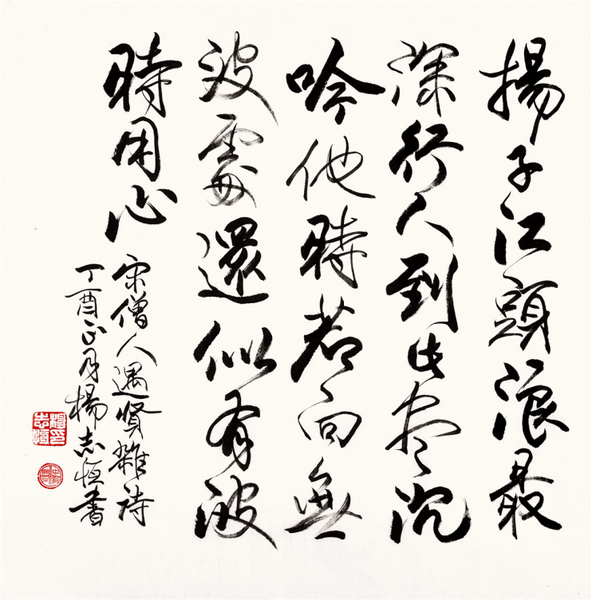 揚子江頭浪最
深行人到此盡沉
吟他時若向無
波處還似有波
時用心
宋僧人遇賢雜詩
丁酉正月楊志恒書